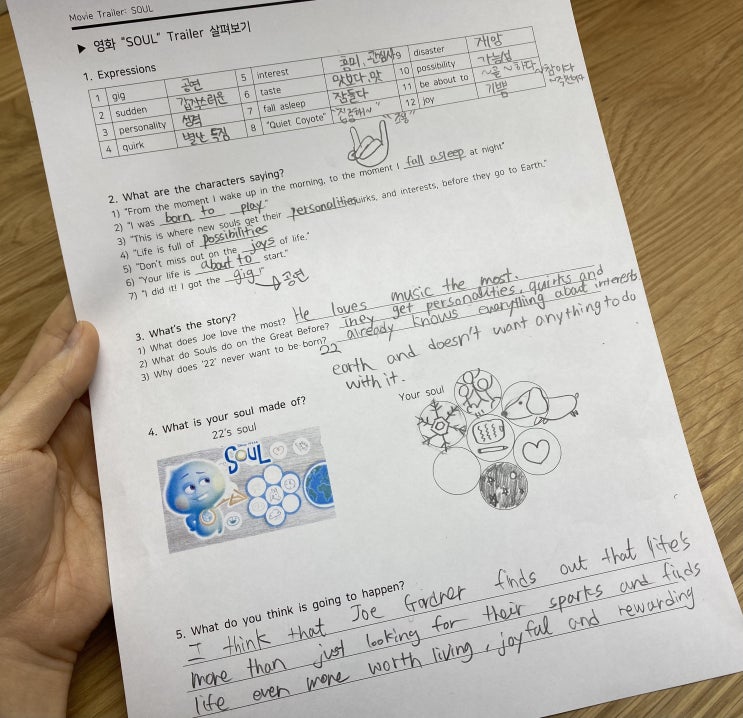 Movie Trailer: SOUL
▶ 영화 "SOUL" Trailer 살펴보기
1. Expressions
1 gig 공연 5 interest 흥미, 관심사 9 disaster 재앙
2 sudden 갑작스러운 6 taste 맛보다, 맛 10 possibility 가능성
3 personality 성격 7 fall asleep 잠들다 11 be about to
4 quirk 별난 특징 8 "Quiet Coyote" 12 joy 기쁨
2. What are the characters saying?
1) "From the moment I wake up in the morning, to the moment I fall asleep at night"
2) "I was born to play"
3) "This is where new souls get their personalities quirks, and interests, before they go to Earth."
4) "Life is full of possibilities
5) "Don't miss out on the joys of life."
6) "Your life is about to start."
7) "I did it! I got the gig" → 공연
3. What's the story?
1) What does Joe love the most? He loves music the most.
2) What do Souls do on the Great Before? They get personalities, quirks and interests
3) Why does '22' never want to be born? 22 already knows everything about
earth and doesn't want anything to do
with it.
4. What is your soul made of?
22's soul
Your soul
SOUL
5. What do you think is going to happen?
I think that Joe Gardner finds out that life's
more than just looking for their sparks and finds
life even more worth living, joyful and rewarding